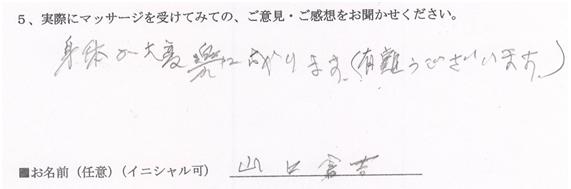 5、実際にマッサージを受けてみての、ご意見・ご感想をお聞かせください。
身体が大変楽に成ります。(有難うございます。)
■お名前（任意）（イニシャル可） 山口倉吉